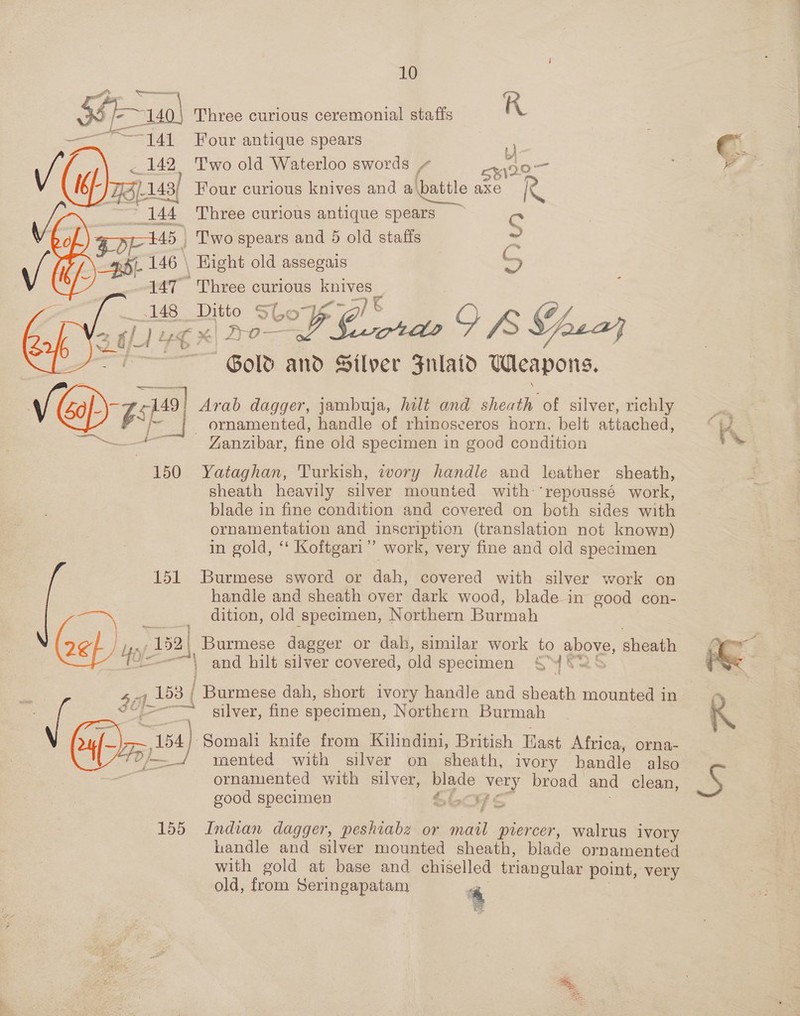 10
35/- 140 Three curious ceremonial staffs R
141 Four antique spears
142 Two old Waterloo swords
16/- 143 Four curious knives and a battle axe R
144 Three curious antique spears
145 Two spears and 5 old staffs S
16/- 146 Eight old assegais S
147 Three curious knives
148 Ditto
Do Swords & Spear
Gold and Silver Inlaid Weapons.
60/- 149 Arab dagger, jambuja, hilt and sheath of silver, richly
ornamented, handle of rhinosceros horn. belt attached, R
Zanzibar, fine old specimen in good condition
150 Yataghan, Turkish, ivory handle and leather sheath,
sheath heavily silver mounted with repoussé work,
blade in fine condition and covered on both sides with
ornamentation and inscription (translation not known)
in gold, “ Koftgari ” work, very fine and old specimen
151 Burmese sword or dah, covered with silver work on
handle and sheath over dark wood, blade in good con-
dition, old specimen, Northern Burmah
26/- 152 Burmese dagger or dah, similar work to above, sheath R
and hilt silver covered, old specimen
153 Burmese dah, short ivory handle and sheath mounted in
silver, fine specimen, Northern Burmah R
24/- 154 Somali knife from Kilindini, British East Africa, orna-
mented with silver on sheath, ivory handle also
ornamented with silver, blade very broad and clean, S
good specimen
155 Indian dagger, peshiabz or mail piercer, walrus ivory
handle and silver mounted sheath, blade ornamented
with gold at base and chiselled triangular point, very
old, from Seringapatam